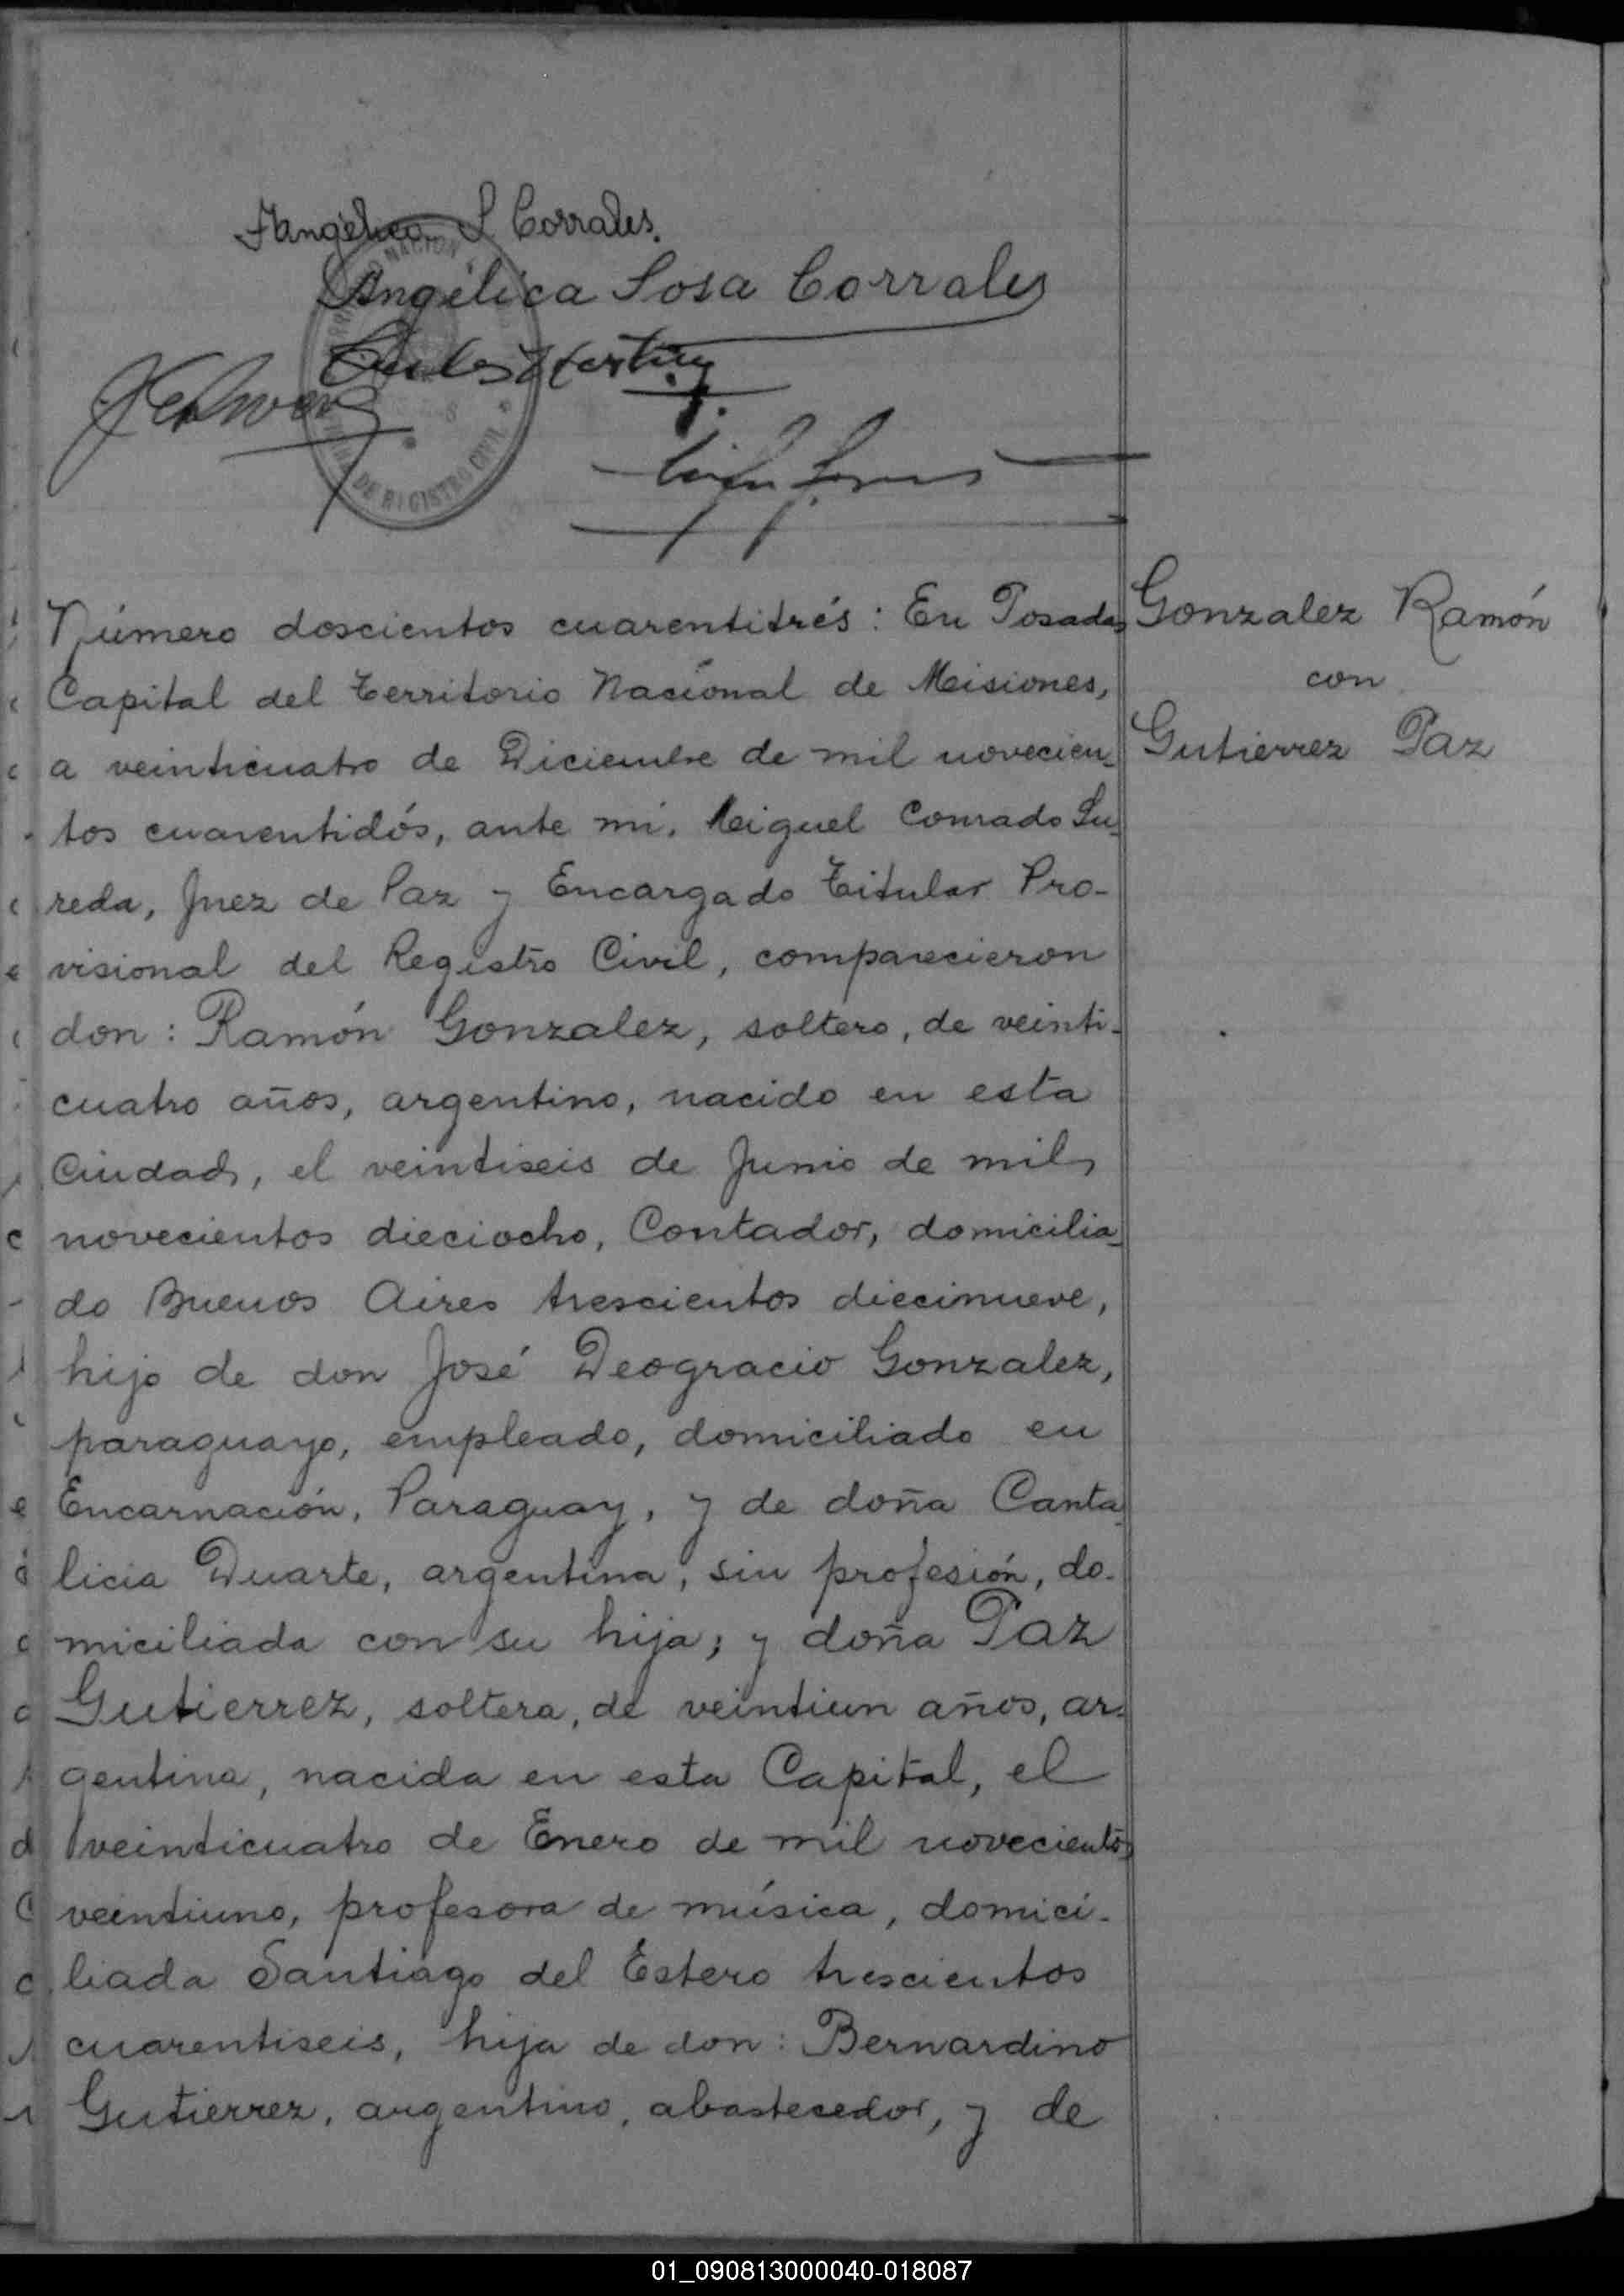 Fangélica S Corrales.
Angélica Sosa Corrales
DE REGISTRO CIVIL
Número doscientos cuarentitrés: En Posadas
Capital del Territorio Nacional de Misiones,
a veinticuatro de Diciembre de mil novecien-
tos cuarentidós, ante mí, Miguel Conrado Su-
reda, Juez de Paz y Encargado Titular Pro-
visional del Registro Civil, comparecieron
don: Ramón Gonzalez, soltero, de veinti-
cuatro años, argentino, nacido en esta
Ciudad, el veintiseis de Junio de mil
novecientos dieciocho, Contador, domicilia-
do Buenos Aires trescientos diecinueve,
hijo de don José Deogracio Gonzalez,
paraguayo, empleado, domiciliado en
Encarnación, Paraguay, y de doña Canta-
licia Duarte, argentina, sin profesión, do-
miciliada con su hija; y doña Paz
Gutierrez, soltera, de veintiun años, ar-
gentina, nacida en esta Capital, el
veinticuatro de Enero de mil novecientos
veintiuno, profesora de música, domici-
liada Santiago del Estero trescientos
cuarentiseis, hija de don: Bernardino
Gutierrez, argentino, abastecedor, y de
Gonzalez Ramón
con
Gutierrez Paz
01_090813000040-018087